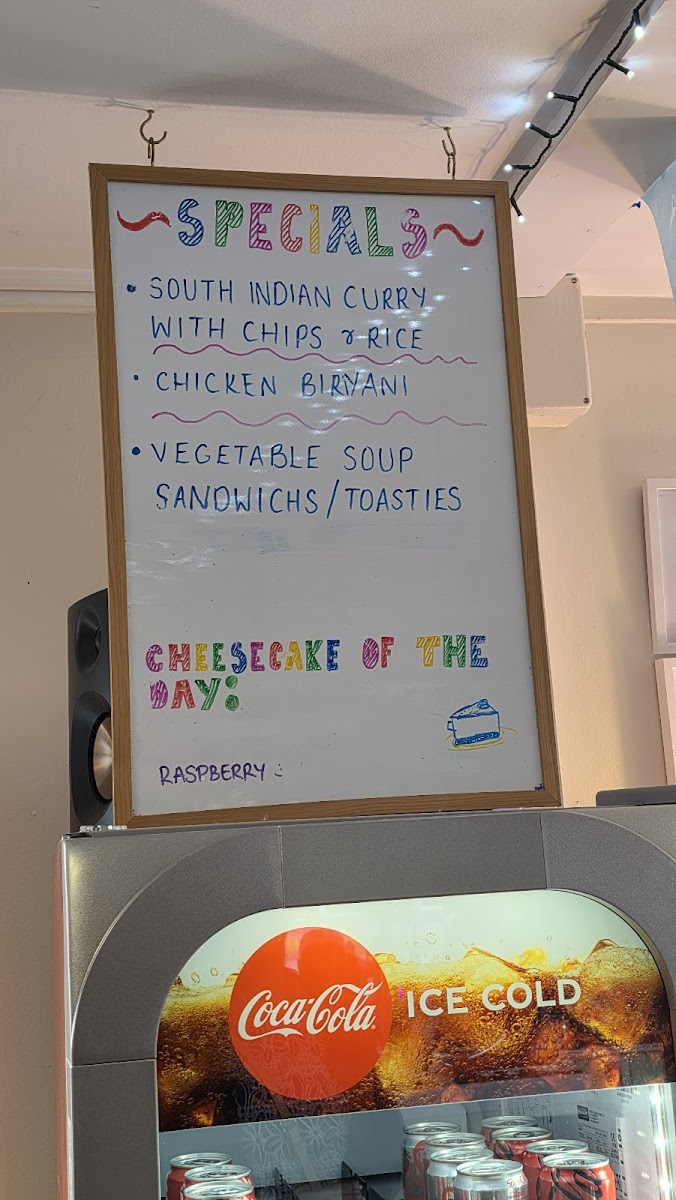 ~SPECIALS~
• SOUTH INDIAN CURRY
WITH CHIPS & RICE
• CHICKEN BIRYANI
• VEGETABLE SOUP
SANDWICHS/TOASTIES
CHEESECAKE OF THE
DAY:
RASPBERRY :
Coca-Cola
ICE COLD